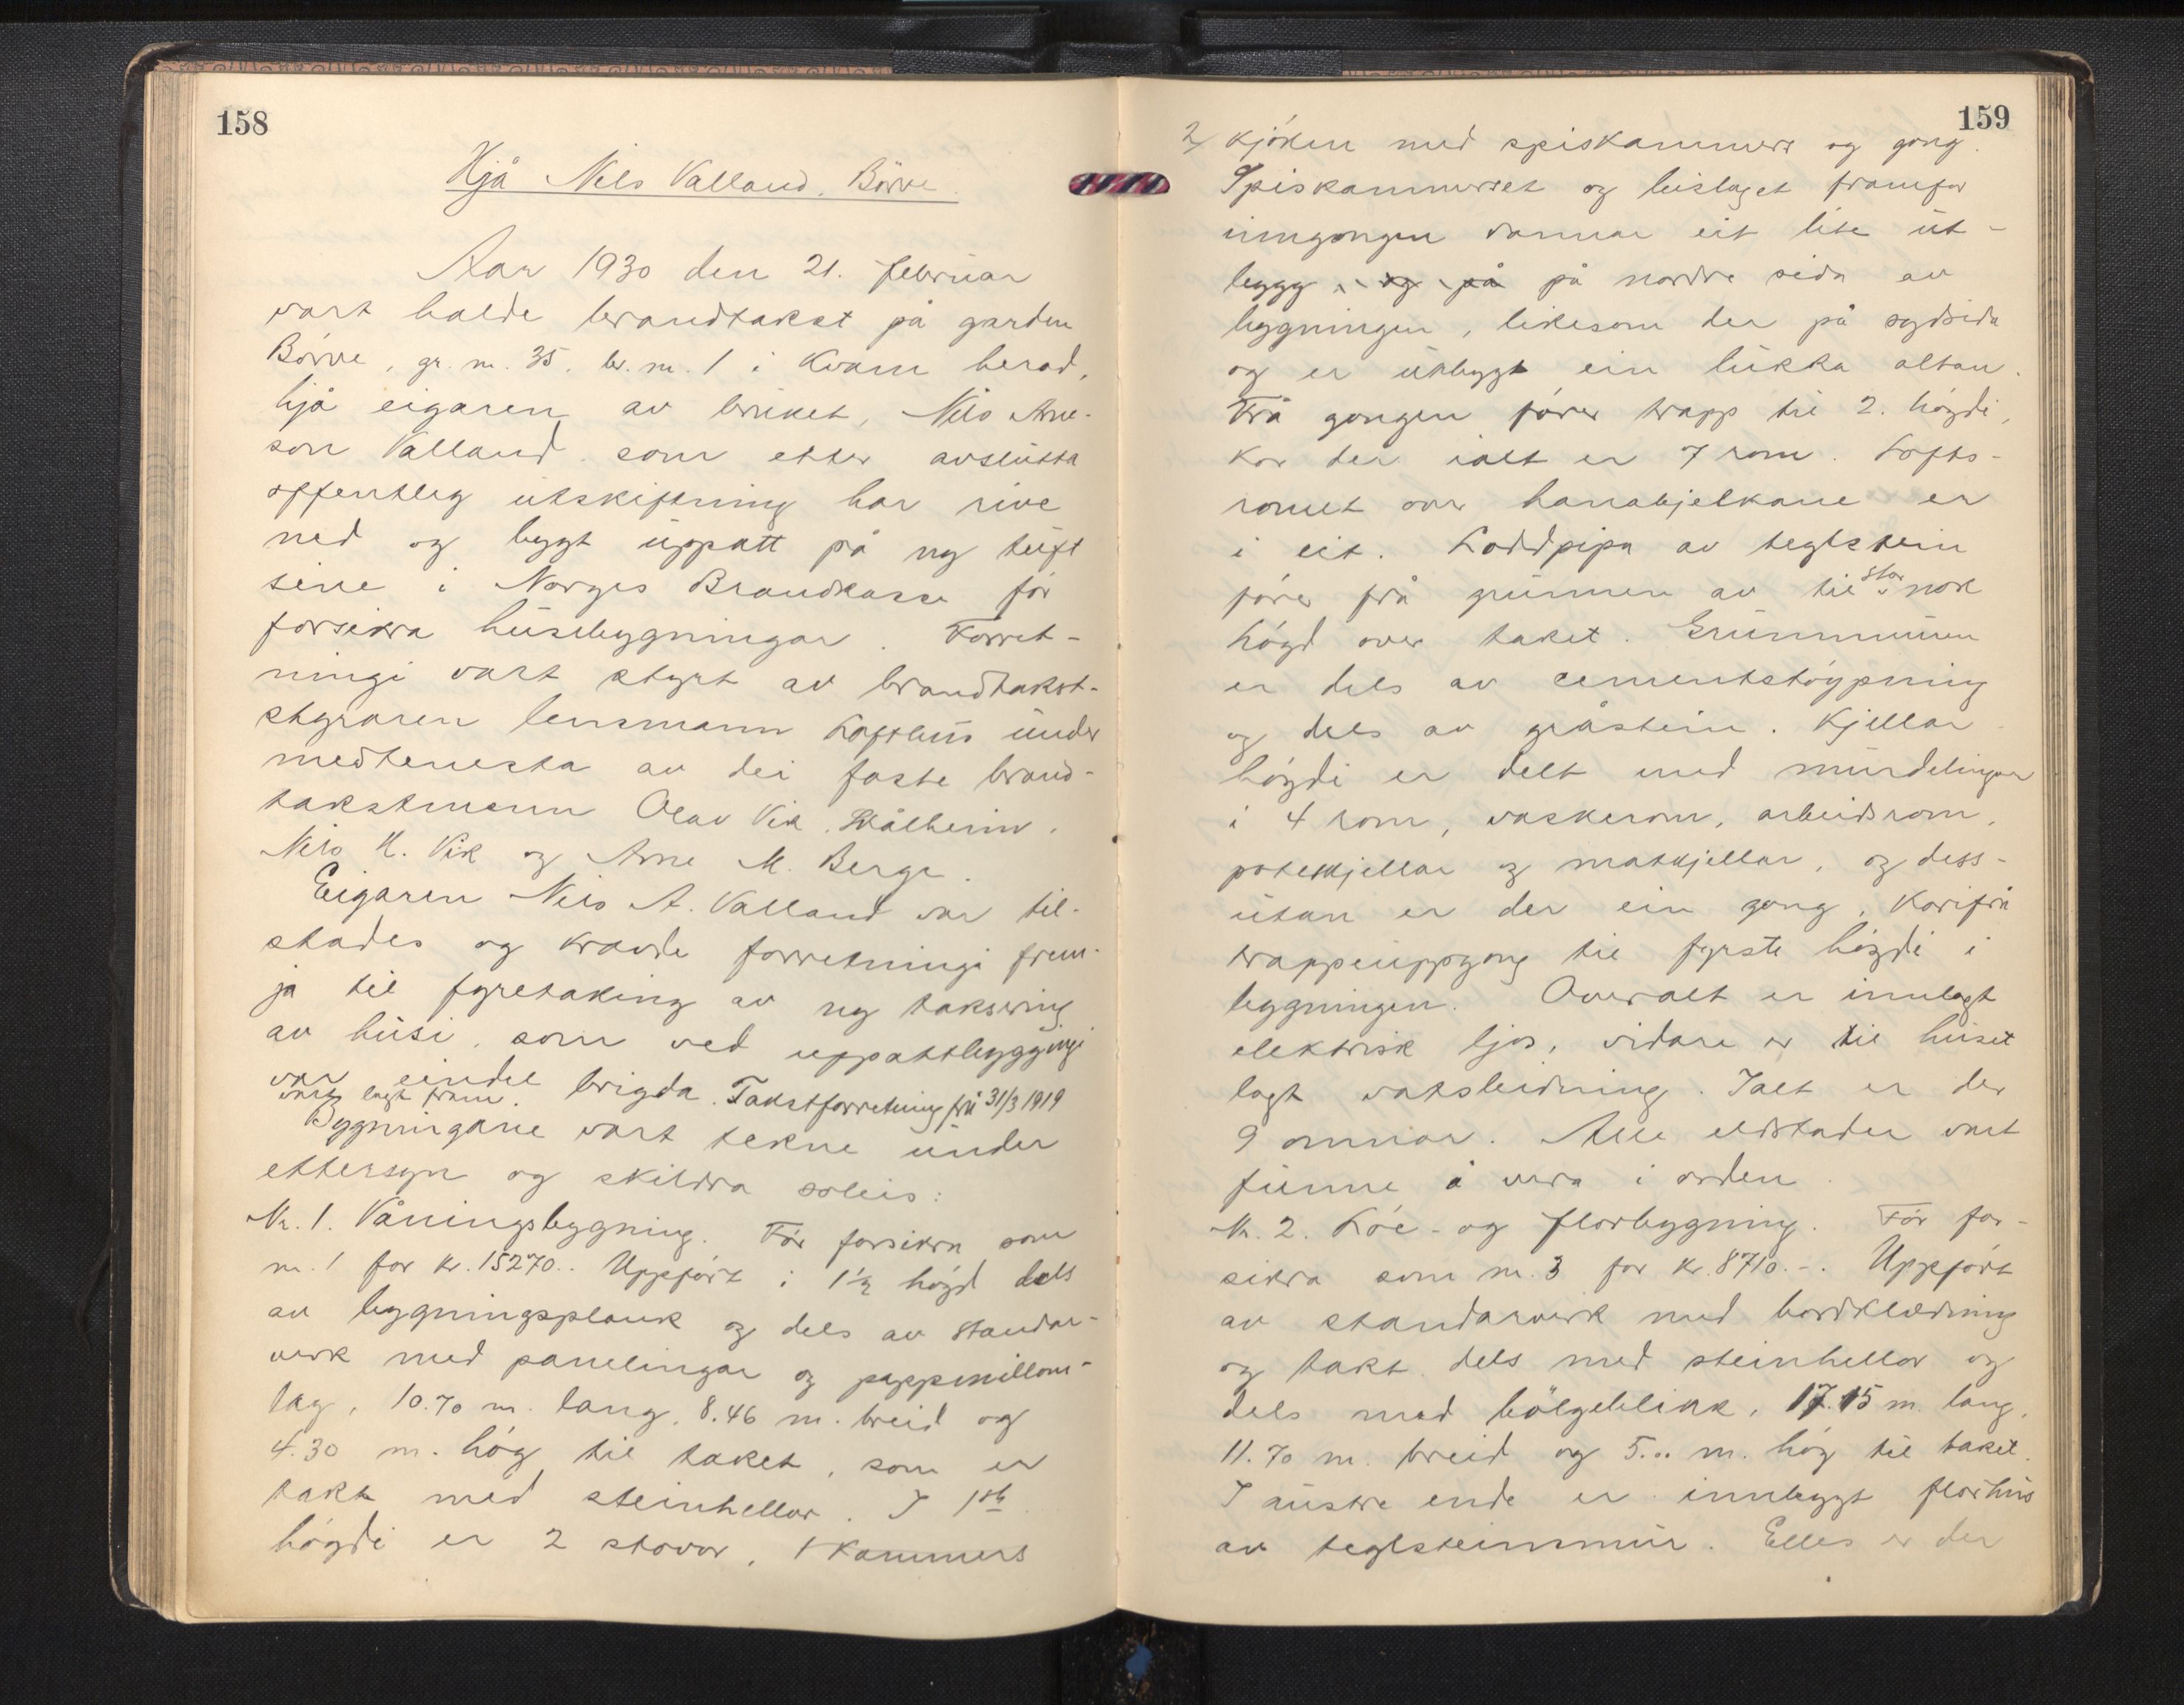 158
Hjå Nils Valland, Børve.
Aar 1930 den 21. februar
vart halde brandtakst på garden
Børve, gr. nr. 35, br. nr. 1 i Kvam herad,
hjå eigaren av bruket, Nils Arne-
son Valland som etter avslutta
offentleg utskiftning har rive
ned og bygt uppatt på ny tuft
sine i Norges Brandkasse før
forsikra husebygningar. Forret-
ningi vart styrt av brandtakst-
styraren lensmann Lofthus under
medtenesta av dei faste brand-
takstmenn Olav Vik, Stålheim,
Nils H. Vik og Arne M. Berge.
Eigaren Nils A. Valland var til-
stades og kravde forretningi frem-
ja til fyretaking av ny taksering
av husi, som ved uppattbyggingi
var eindel brigda. Takstforretning frå 31/3 1919
vart lagt fram.
Bygningane vart tekne under
ettersyn og skildra soleis:
Nr. 1. Våningsbygning. Før forsikra som
nr. 1 for kr. 15270.- Uppført i 1½ høgd dels
av bygningsplank og dels av standar-
verk med panelingar og pappmillom-
lag, 10.70 m. lang, 8.46 m. breid og
4.30 m. høg til taket, som er
takt med steinhellor. I 1ste
høgdi er 2 stovor, 1 kammers
159
2/ kjøken med spiskammers og gong.
Spiskammerset og bislaget framfor
inngongen dannar eit lite ut-
bygg, og på på nordre sida av
bygningen, likesom der på sydsida
og er utbygt ein lukka altan.
Frå gongen fører trapp til 2. høgdi,
kor der ialt er 7 rom. Lofts-
romet over hanabjelkane er
i eit. Loddpipa av teglstein
fører frå grunnen av til stor nok
høgd over taket. Grunnmuren
er dels av cementstøypning
og dels av gråstein. Kjellar
høgdi er delt med murdelingar
i 4 rom, vaskerom, arbeidsrom,
potetkjellar og matkjellar, og dess-
utan er der ein gong, korifrå
trappeuppgong til fyrste høgdi i
bygningen. Overalt er innlagt
elektrisk ljos, vidare er til huset
lagt vatsleidning. Ialt er der
9 omnar. Alle eldstader vart
funne å vera i orden.
Nr. 2. Løe- og florbygning. Før for-
sikra som nr. 3 for kr. 8710.-. Uppført
av standarverk med bordklædning
og takt dels med steinhellor og
dels med bølgeblikk, 17.15 m. lang,
11.70 m. breid og 5.00 m. høg til taket.
I austre ende er innbygt florhus
av teglsteinmur. Elles er der